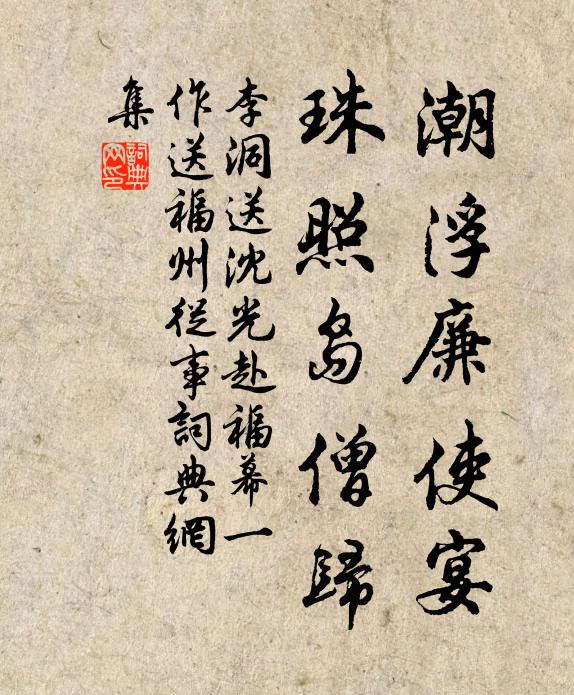 潮浮廉使宴
珠照島僧歸
李洞送沈光赴福幕一
作送福州從事詞典網
集
詞典
網印